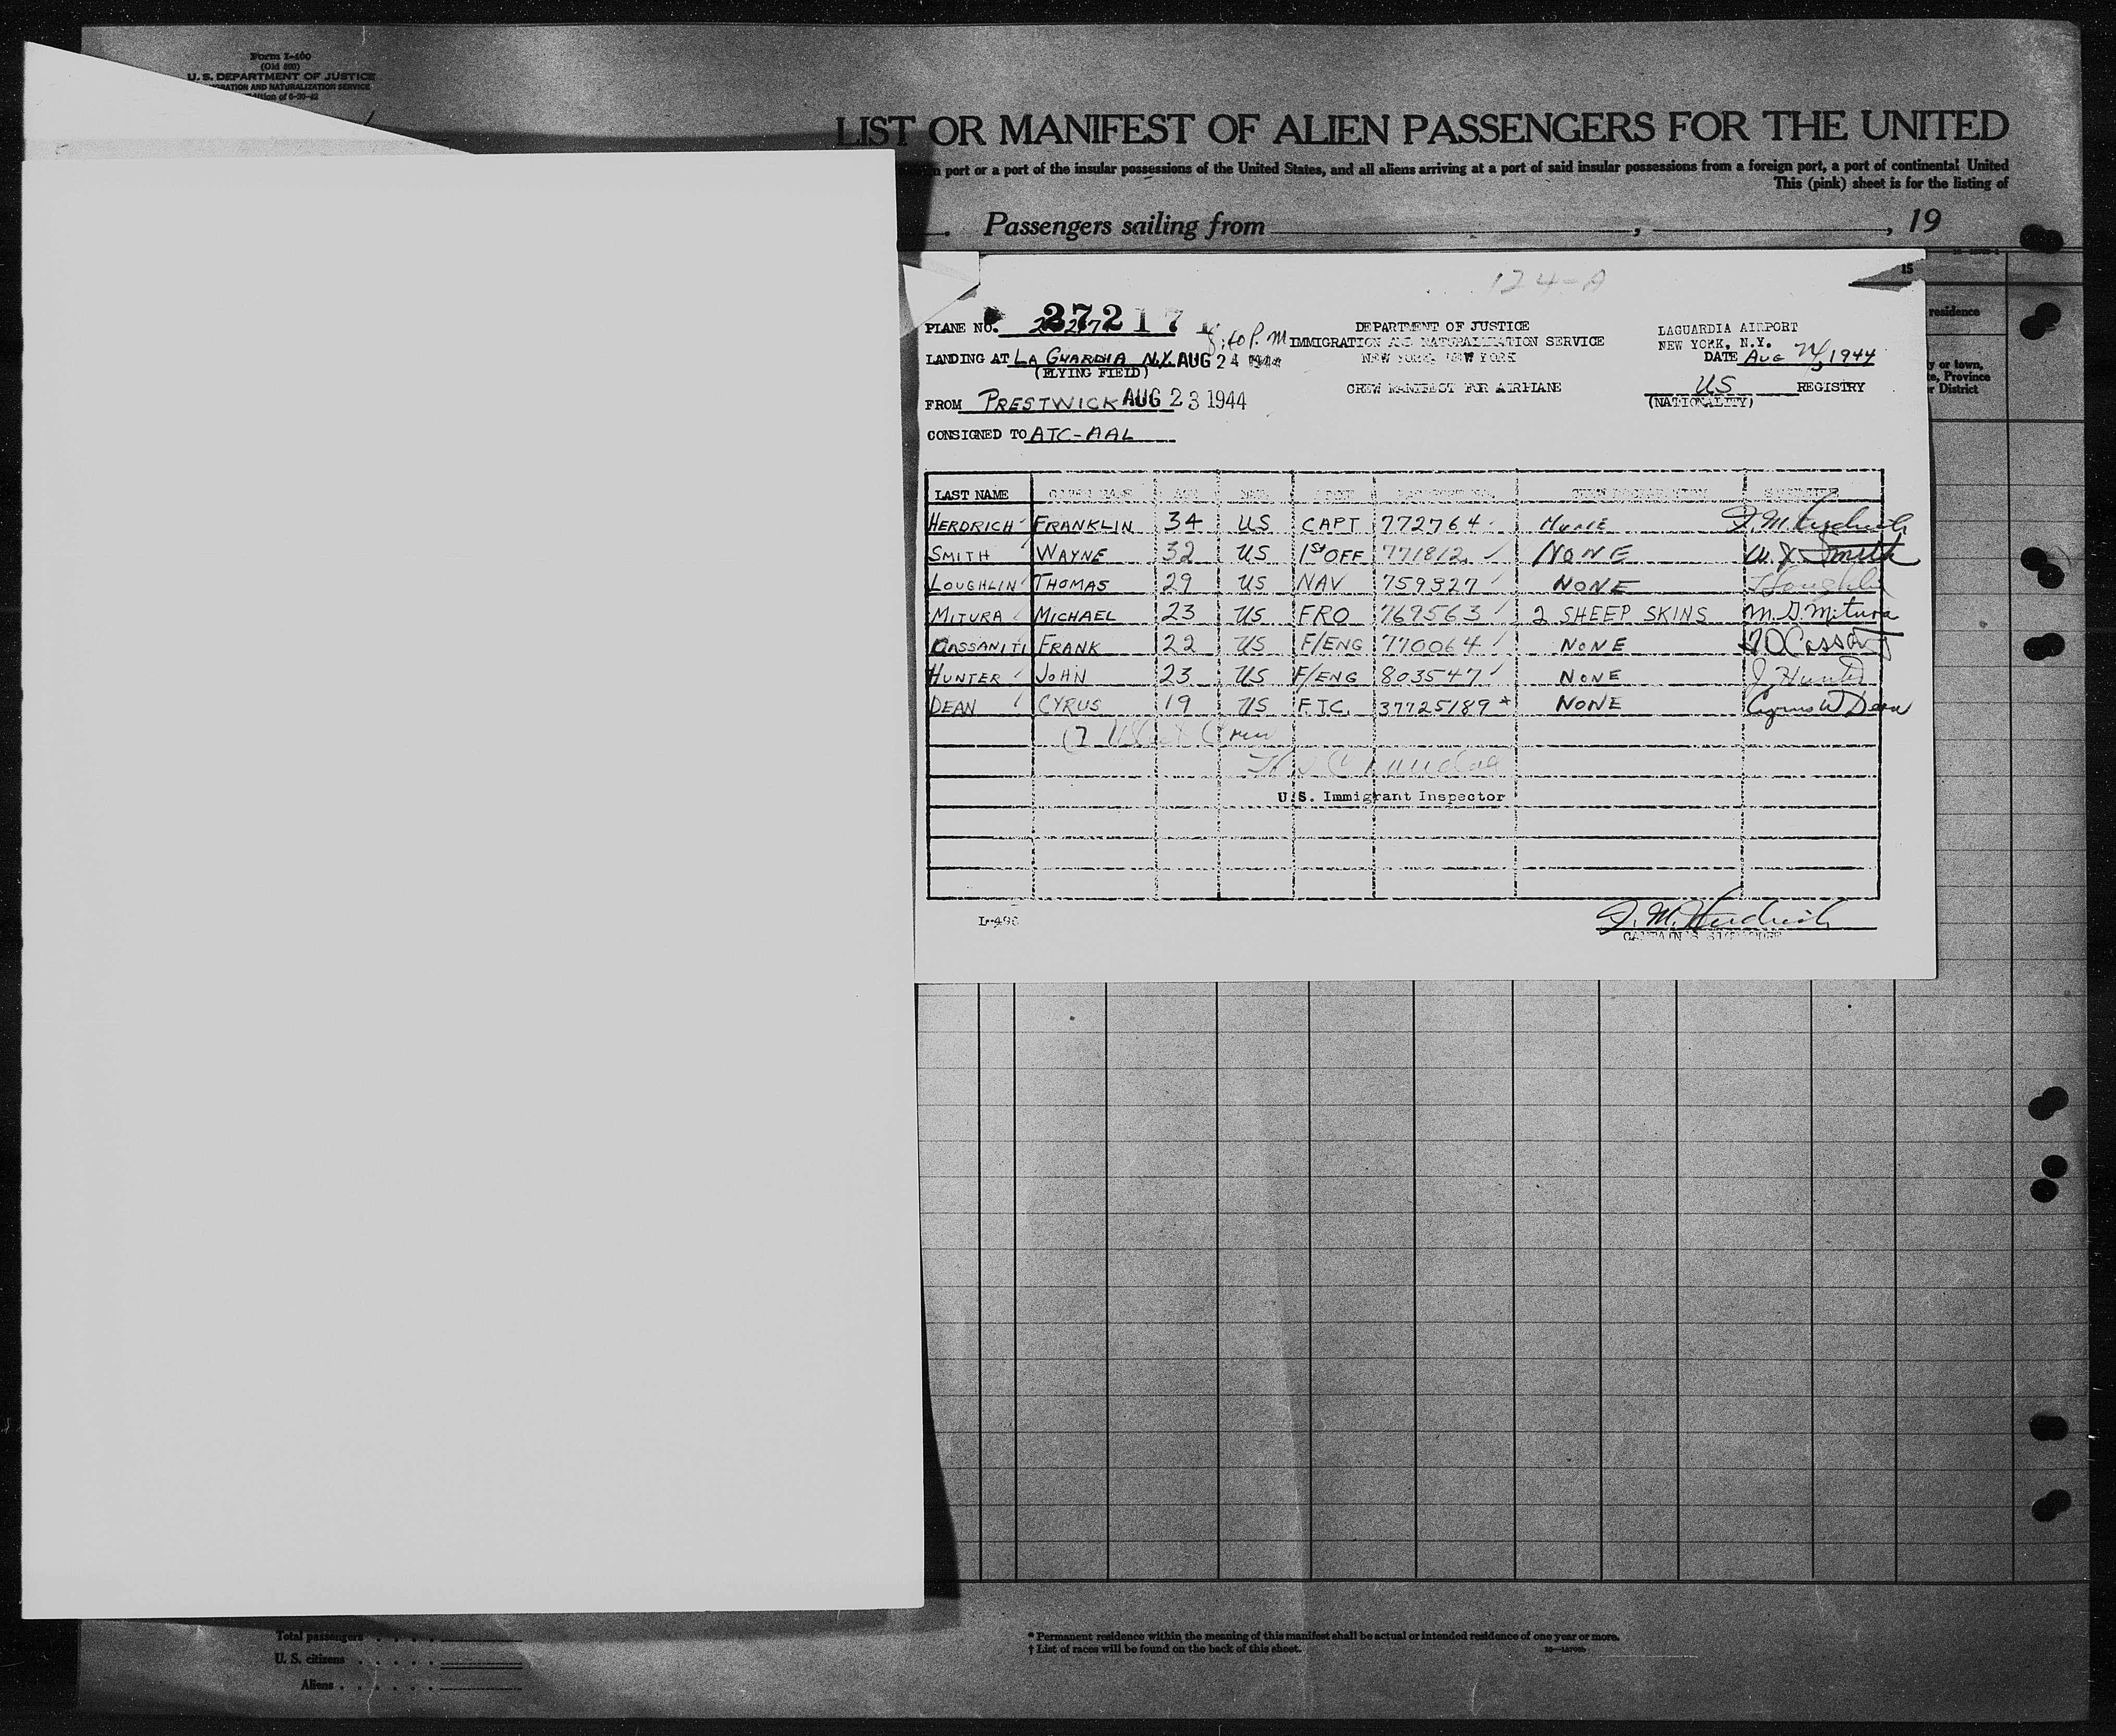 Form I-460
(Old 500)
U. S. DEPARTMENT OF JUSTICE
RATION AND NATURALIZATION SERVICE
dition of 6-30-42
LIST OR MANIFEST OF ALIEN PASSENGERS FOR THE UNITED
n port or a port of the insular possessions of the United States, and all aliens arriving at a port of said insular possessions from a foreign port, a port of continental United
This (pink) sheet is for the listing of
Passengers sailing from , , 19
15
residence
y or town,
te, Province
r District
124-A
PLANE NO. 272171
8:40 P.M
LANDING AT LA GUARDIA N.Y. AUG 24 1944
(FLYING FIELD)
FROM PRESTWICK AUG 23 1944
CONSIGNED TO ATC-AAL
DEPARTMENT OF JUSTICE
IMMIGRATION AND NATURALIZATION SERVICE
NEW YORK, NEW YORK
CREW MANIFEST FOR AIRPLANE
LAGUARDIA AIRPORT
NEW YORK, N.Y.
DATE AUG 24, 1944
US REGISTRY
(NATIONALITY)
LAST NAME GIVEN NAME AGE
HERDRICH FRANKLIN 34 US CAPT 772764 NONE F. M. Herdrich
SMITH WAYNE 32 US 1ST OFF 771812 NONE W. J. Smith
LOUGHLIN THOMAS 29 US NAV 759327 NONE T Loughlin
MITURA MICHAEL 23 US FRO 769563 2 SHEEP SKINS M. G. Mitura
CASSANITI FRANK 22 US F/ENG 770064 NONE
HUNTER JOHN 23 US F/ENG 803547 NONE J Hunter
DEAN CYRUS 19 US F.T.C. 37725189* NONE Cyrus W Dean
(7 Crew
U.S. Immigrant Inspector
I-496
F. M. Herdrich
CAPTAIN'S SIGNATURE
Total passengers . . . .
U. S. citizens . . . . .
Aliens . . . . . .
* Permanent residence within the meaning of this manifest shall be actual or intended residence of one year or more.
† List of races will be found on the back of this sheet.